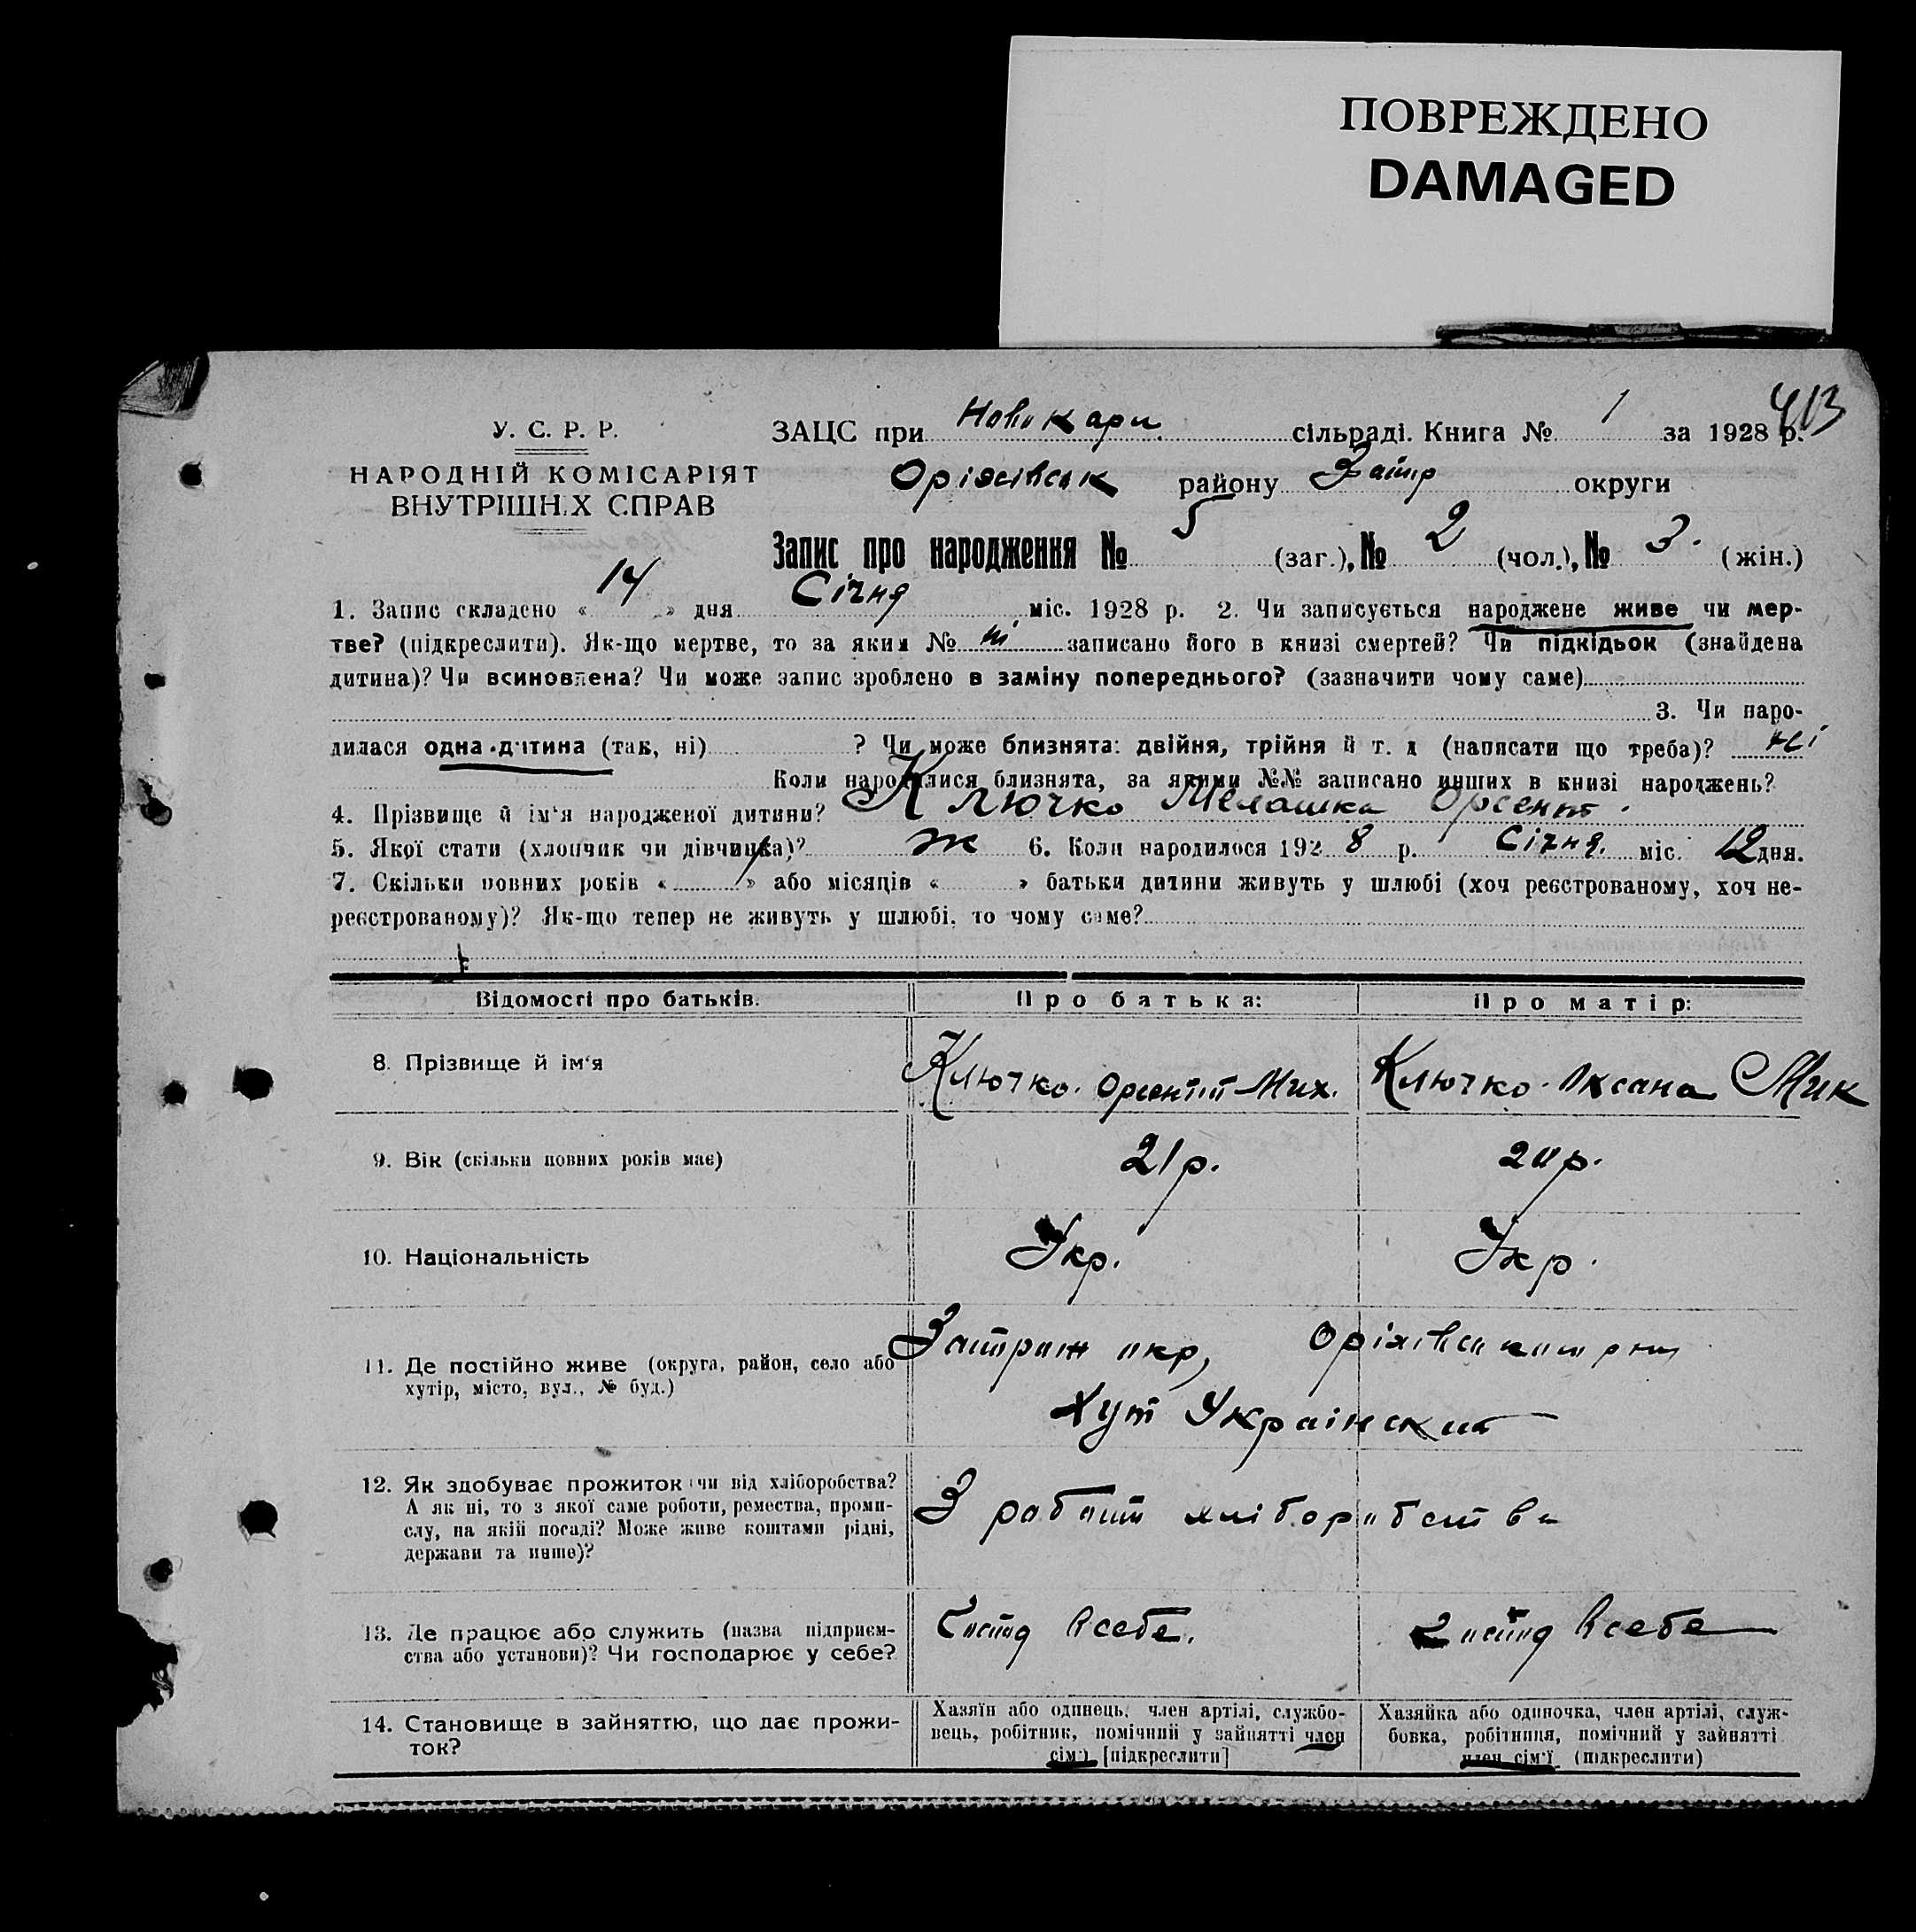 ПОВРЕЖДЕНО
DAMAGED
413
У. С. Р. Р.
НАРОДНІЙ КОМІСАРІЯТ
ВНУТРІШНІХ СПРАВ
ЗАЦС при Новокарл. сільраді. Книга № 1 за 1928 р.
Оріхівськ району Запор округи
Запис про народження № 5 (заг.), № 2 (чол.), № 3. (жін.)
1. Запис складено « 14 » дня Січня міс. 1928 р. 2. Чи записується народжене живе чи мер-
тве? (підкреслити). Як-що мертве, то за яким № записано його в книзі смертей? Чи підкідьок (знайдена
дитина)? Чи всиновлена? Чи може запис зроблено в заміну попереднього? (зазначити чому саме)
3. Чи наро-
дилася одна дитина (так, ні) ? Чи може близнята: двійня, трійня й т. д (написати що треба)? ні
Коли народилися близнята, за якими №№ записано инших в книзі народжень?
4. Прізвище й ім'я народженої дитини? Ключко Мелашка Орсент.
5. Якої стати (хлопчик чи дівчинка)? ж 6. Коли народилося 192 8 р. Січня. міс. 12 дня.
7. Скільки повних років « 1 » або місяців « » батьки дитини живуть у шлюбі (хоч реєстрованому, хоч не-
реєстрованому)? Як-що тепер не живуть у шлюбі, то чому саме?
Відомості про батьків. Про батька: Про матір:
8. Прізвище й ім'я Ключко. Орсентій Мих. Ключко. Оксана Мик
9. Вік (скільки повних років має) 21 р. 20 р.
10. Національність Укр. Укр.
11. Де постійно живе (округа, район, село або
хутір, місто, вул., № буд.)
окр, Оріхівськ
Хут Украінский
12. Як здобуває прожиток чи від хліборобства?
А як ні, то з якої саме роботи, ремества, проми-
слу, на якій посаді? Може живе коштами рідні,
держави та инше)?
З работи хліборобства
13. Де працює або служить (назва підприєм-
ства або установи)? Чи господарює у себе?
Господ в себе. Господ в себе
14. Становище в зайняттю, що дає прожи-
ток?
Хазяїн або одинець, член артілі, службо-
вець, робітник, помічний у зайнятті член
сім'ї [підкреслити]
Хазяйка або одиночка, член артілі, служ-
бовка, робітниця, помічний у зайнятті
член сім'ї (підкреслити)